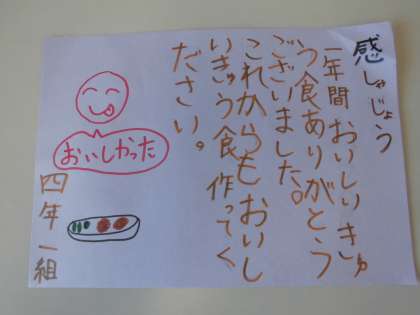 感しゃじょう
一年間おいしいきゅ
う食ありがとう
ございました。
これからもおいし
いきゅう食作ってく
ださい。
おいしかった
四年一組